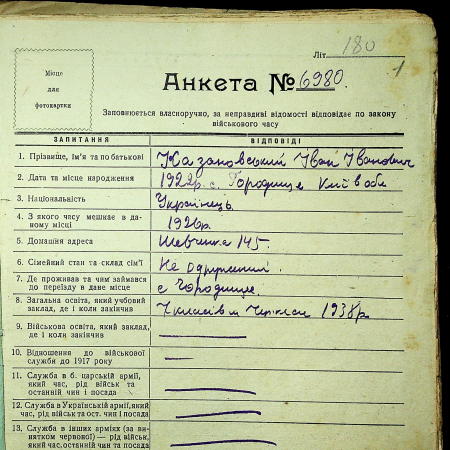 Літ. 180
1
Місце
для
фотокартки
Анкета № 6980.
Заповнюється власноручно, за неправдиві відомості відповідає по закону
військового часу
ЗАПИТАННЯ ВІДПОВІДІ
1. Прізвище, ім'я та по батькові Казановський Іван Іванович
2. Дата та місце народження 1922р. с. Городище Київ обл
3. Національність Українець.
4. З якого часу мешкає в да-
ному місці 1926р.
5. Домашня адреса Шевченка 145.
6. Сімейний стан та склад сім'ї Не одружений.
7. Де проживав та чим займався
до переїзду в дане місце с Городище
8. Загальна освіта, який учбовий
заклад, де і коли закінчив 7 класів м Черкаси 1938р.
9. Військова освіта, який заклад,
де і коли закінчив
10. Відношення до військової
служби до 1917 року
11. Служба в б. царській армії,
який час, рід військ та
останній чин і посада
12. Служба в Українській армії, який
час, рід військ та ост. чин і посада
13. Служба в інших арміях (за ви-
нятком червоної) — рід військ,
який час, останній чин та посада